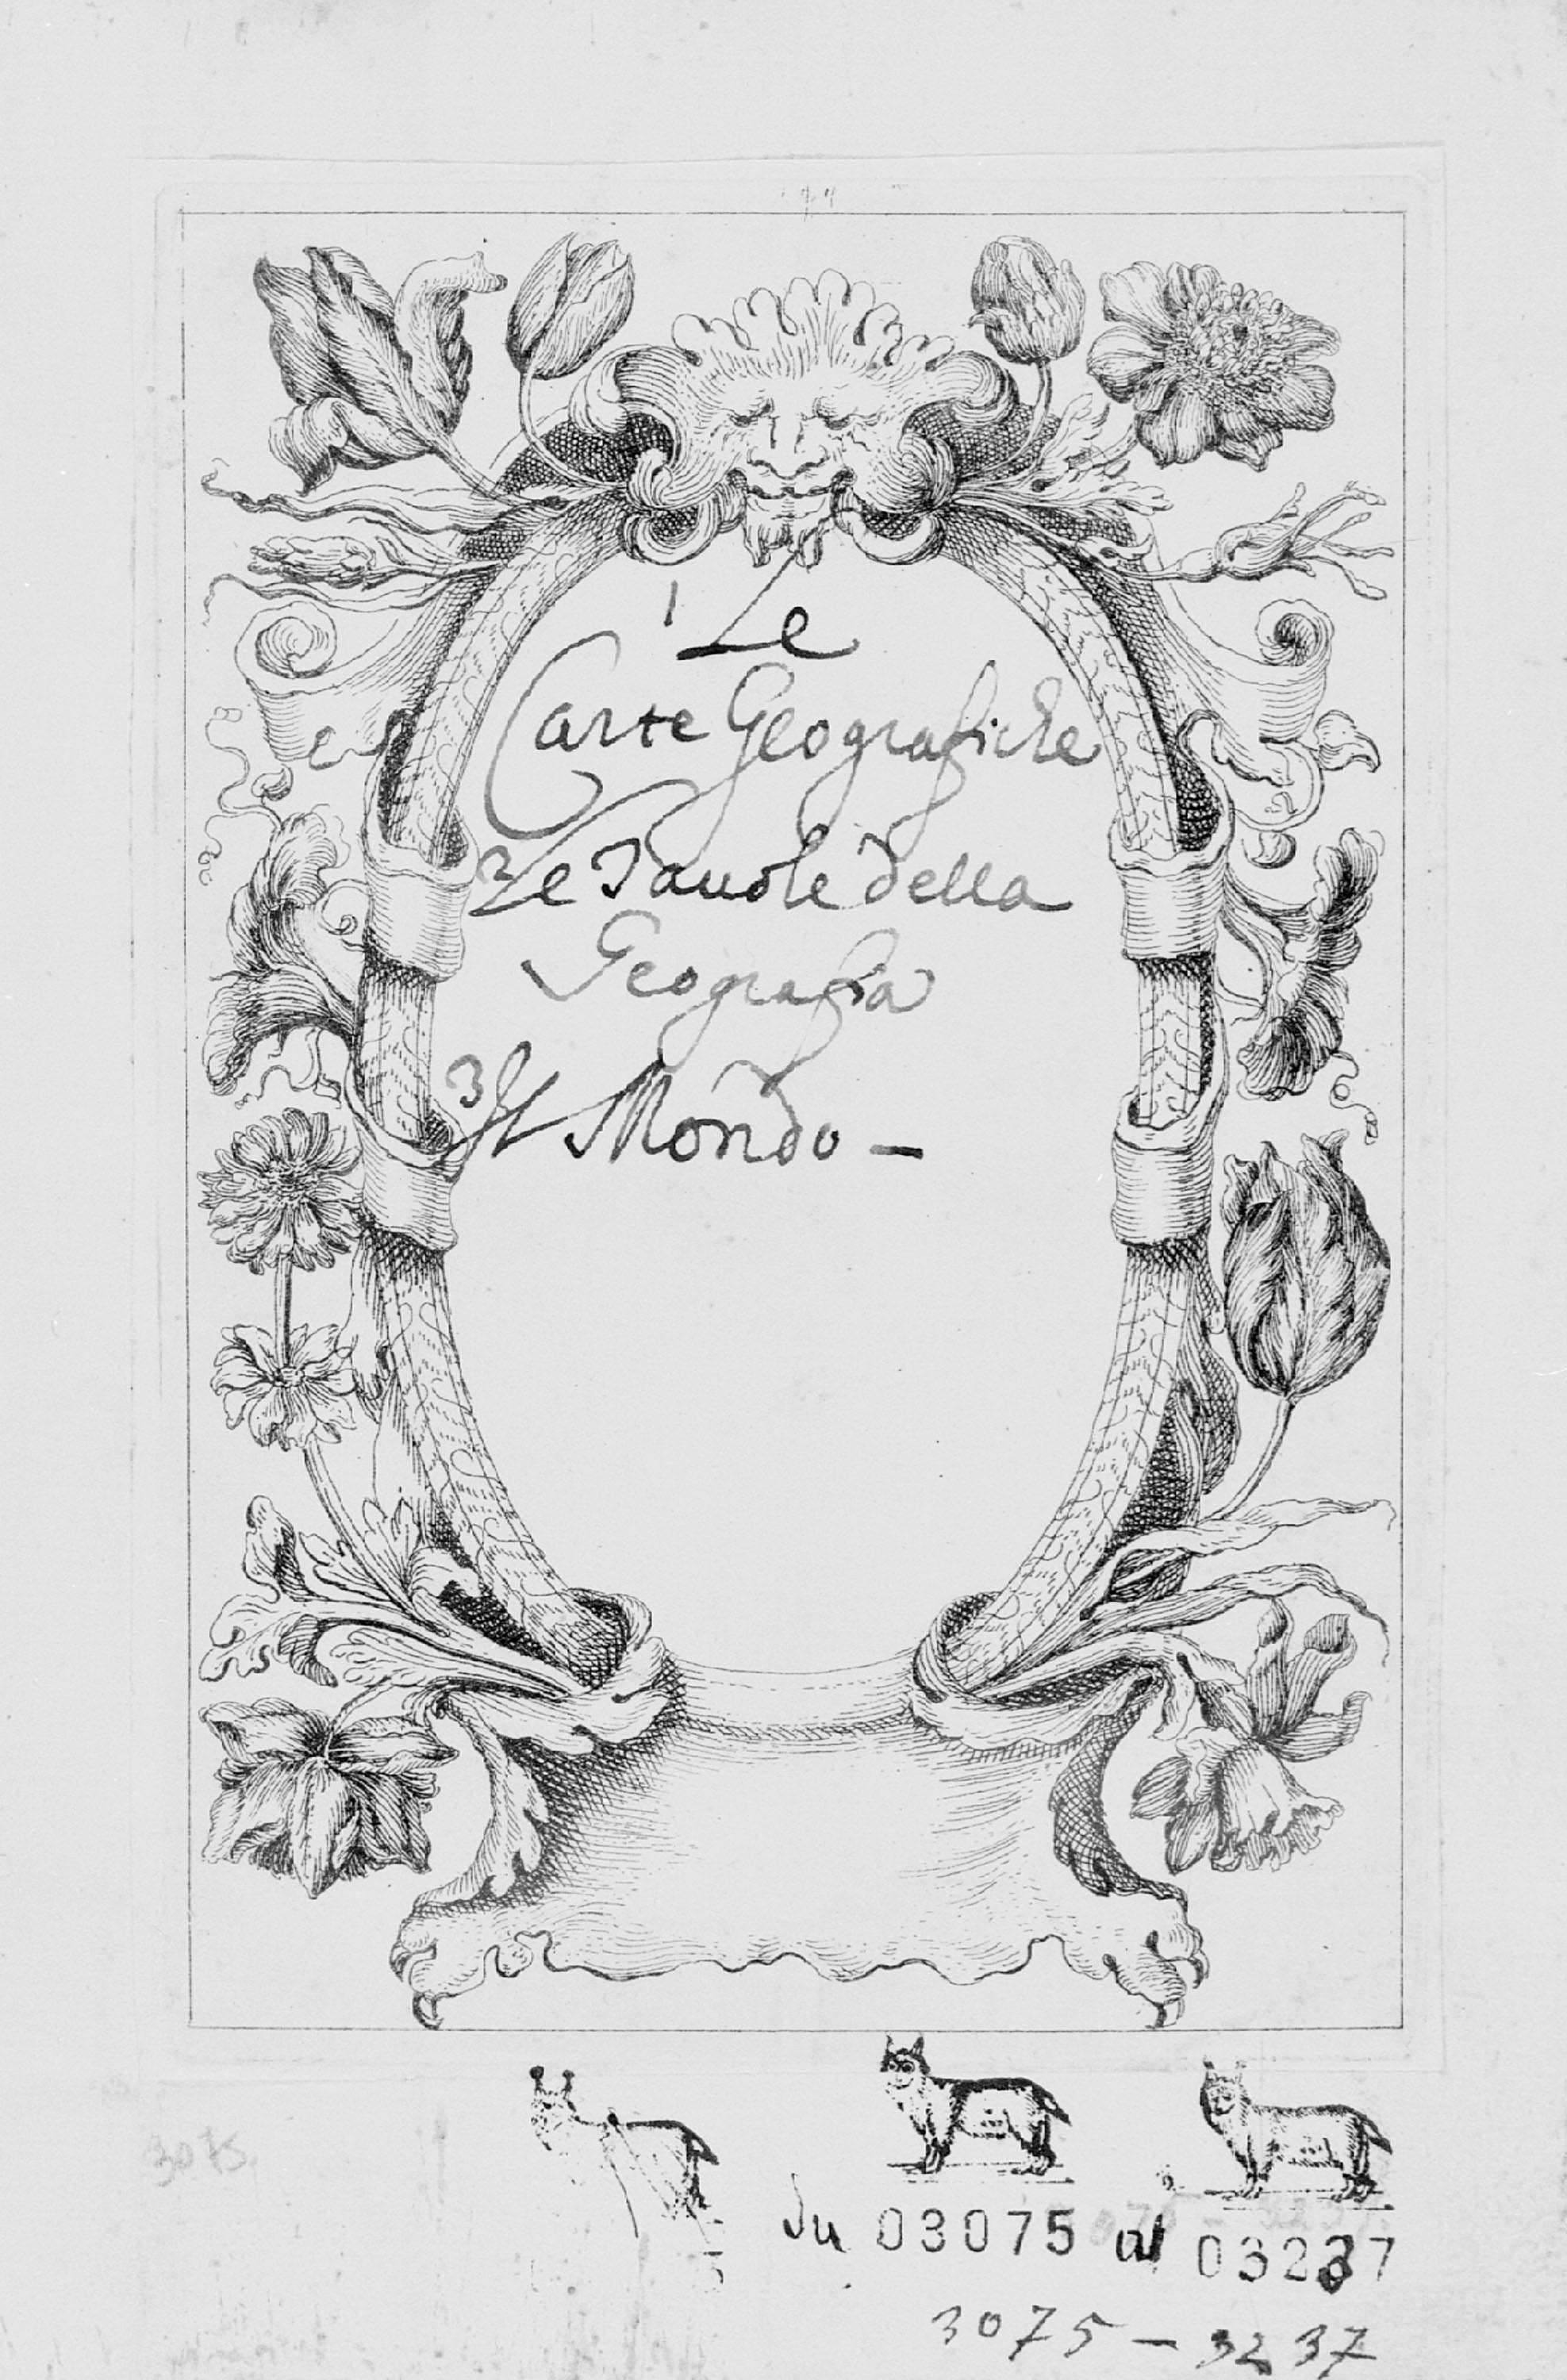 1 Le
Carte Geografiche
2 Le Tauole della
Geografia
3 Il Mondo -
3075
du 03075 al 03237
3075 - 3237